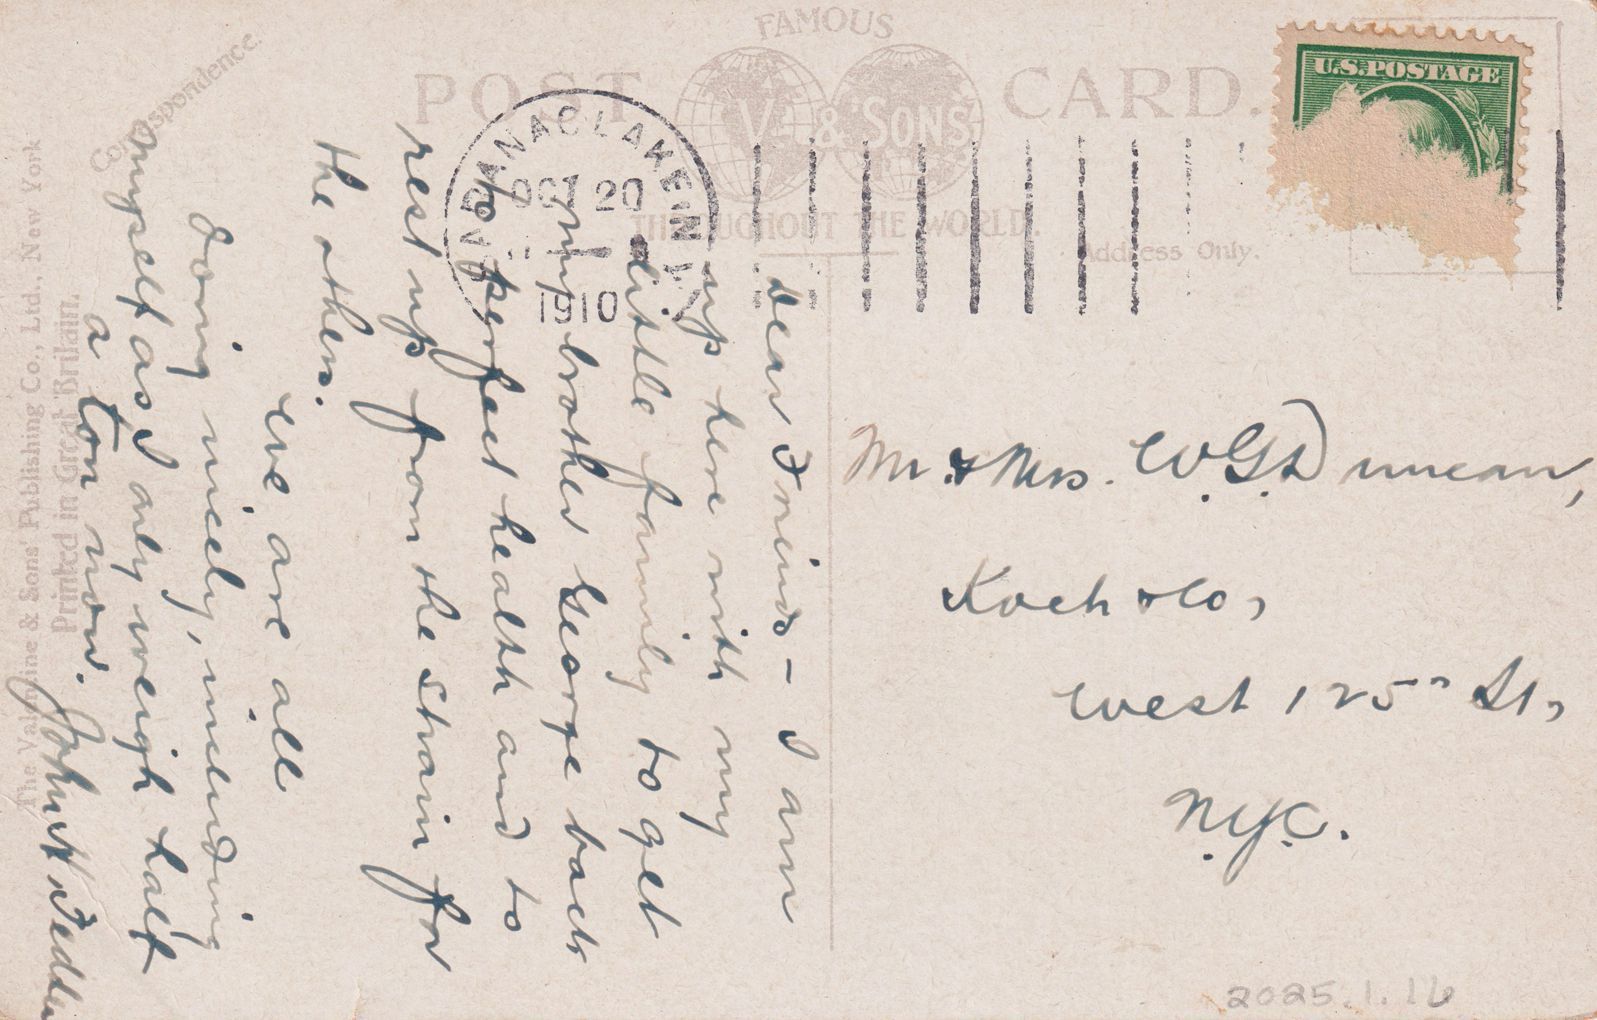 FAMOUS
POST CARD.
V. & SONS
THROUGHOUT THE WORLD.
Correspondence.
Address Only.
U.S. POSTAGE
SARANAC LAKE N.Y.
OCT 20
1910
The Valentine & Sons' Publishing Co., Ltd., New York
Printed in Great Britain.
Dear Friends – I am
up here with my
little family to get
my brother George back
to perfect health and to
rest up from the strain for
the others.
We are all
doing nicely, including
myself as I only weigh half
a ton now.
John
Mr. & Mrs. W. G. Duncan,
Koch & Co,
West 125" St,
N.Y.C.
2025.1.16